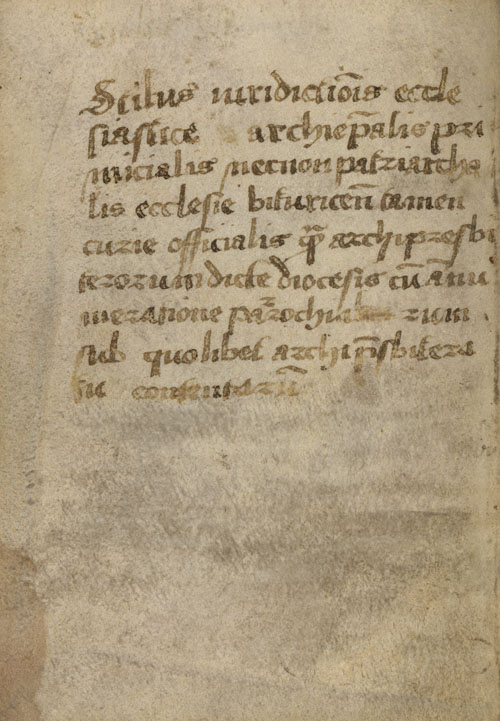 Stilus iuridictiōis eccle
siastice archiep̄alis pri
micialis necnon patriarcha
lis ecclesie bituricen̄ tamen
curie officialis q̄ archipresbi
terorum dicte diocesis cū annu
meratione parrochia rum
sub quolibet archip̄sbitera
tu contentarū